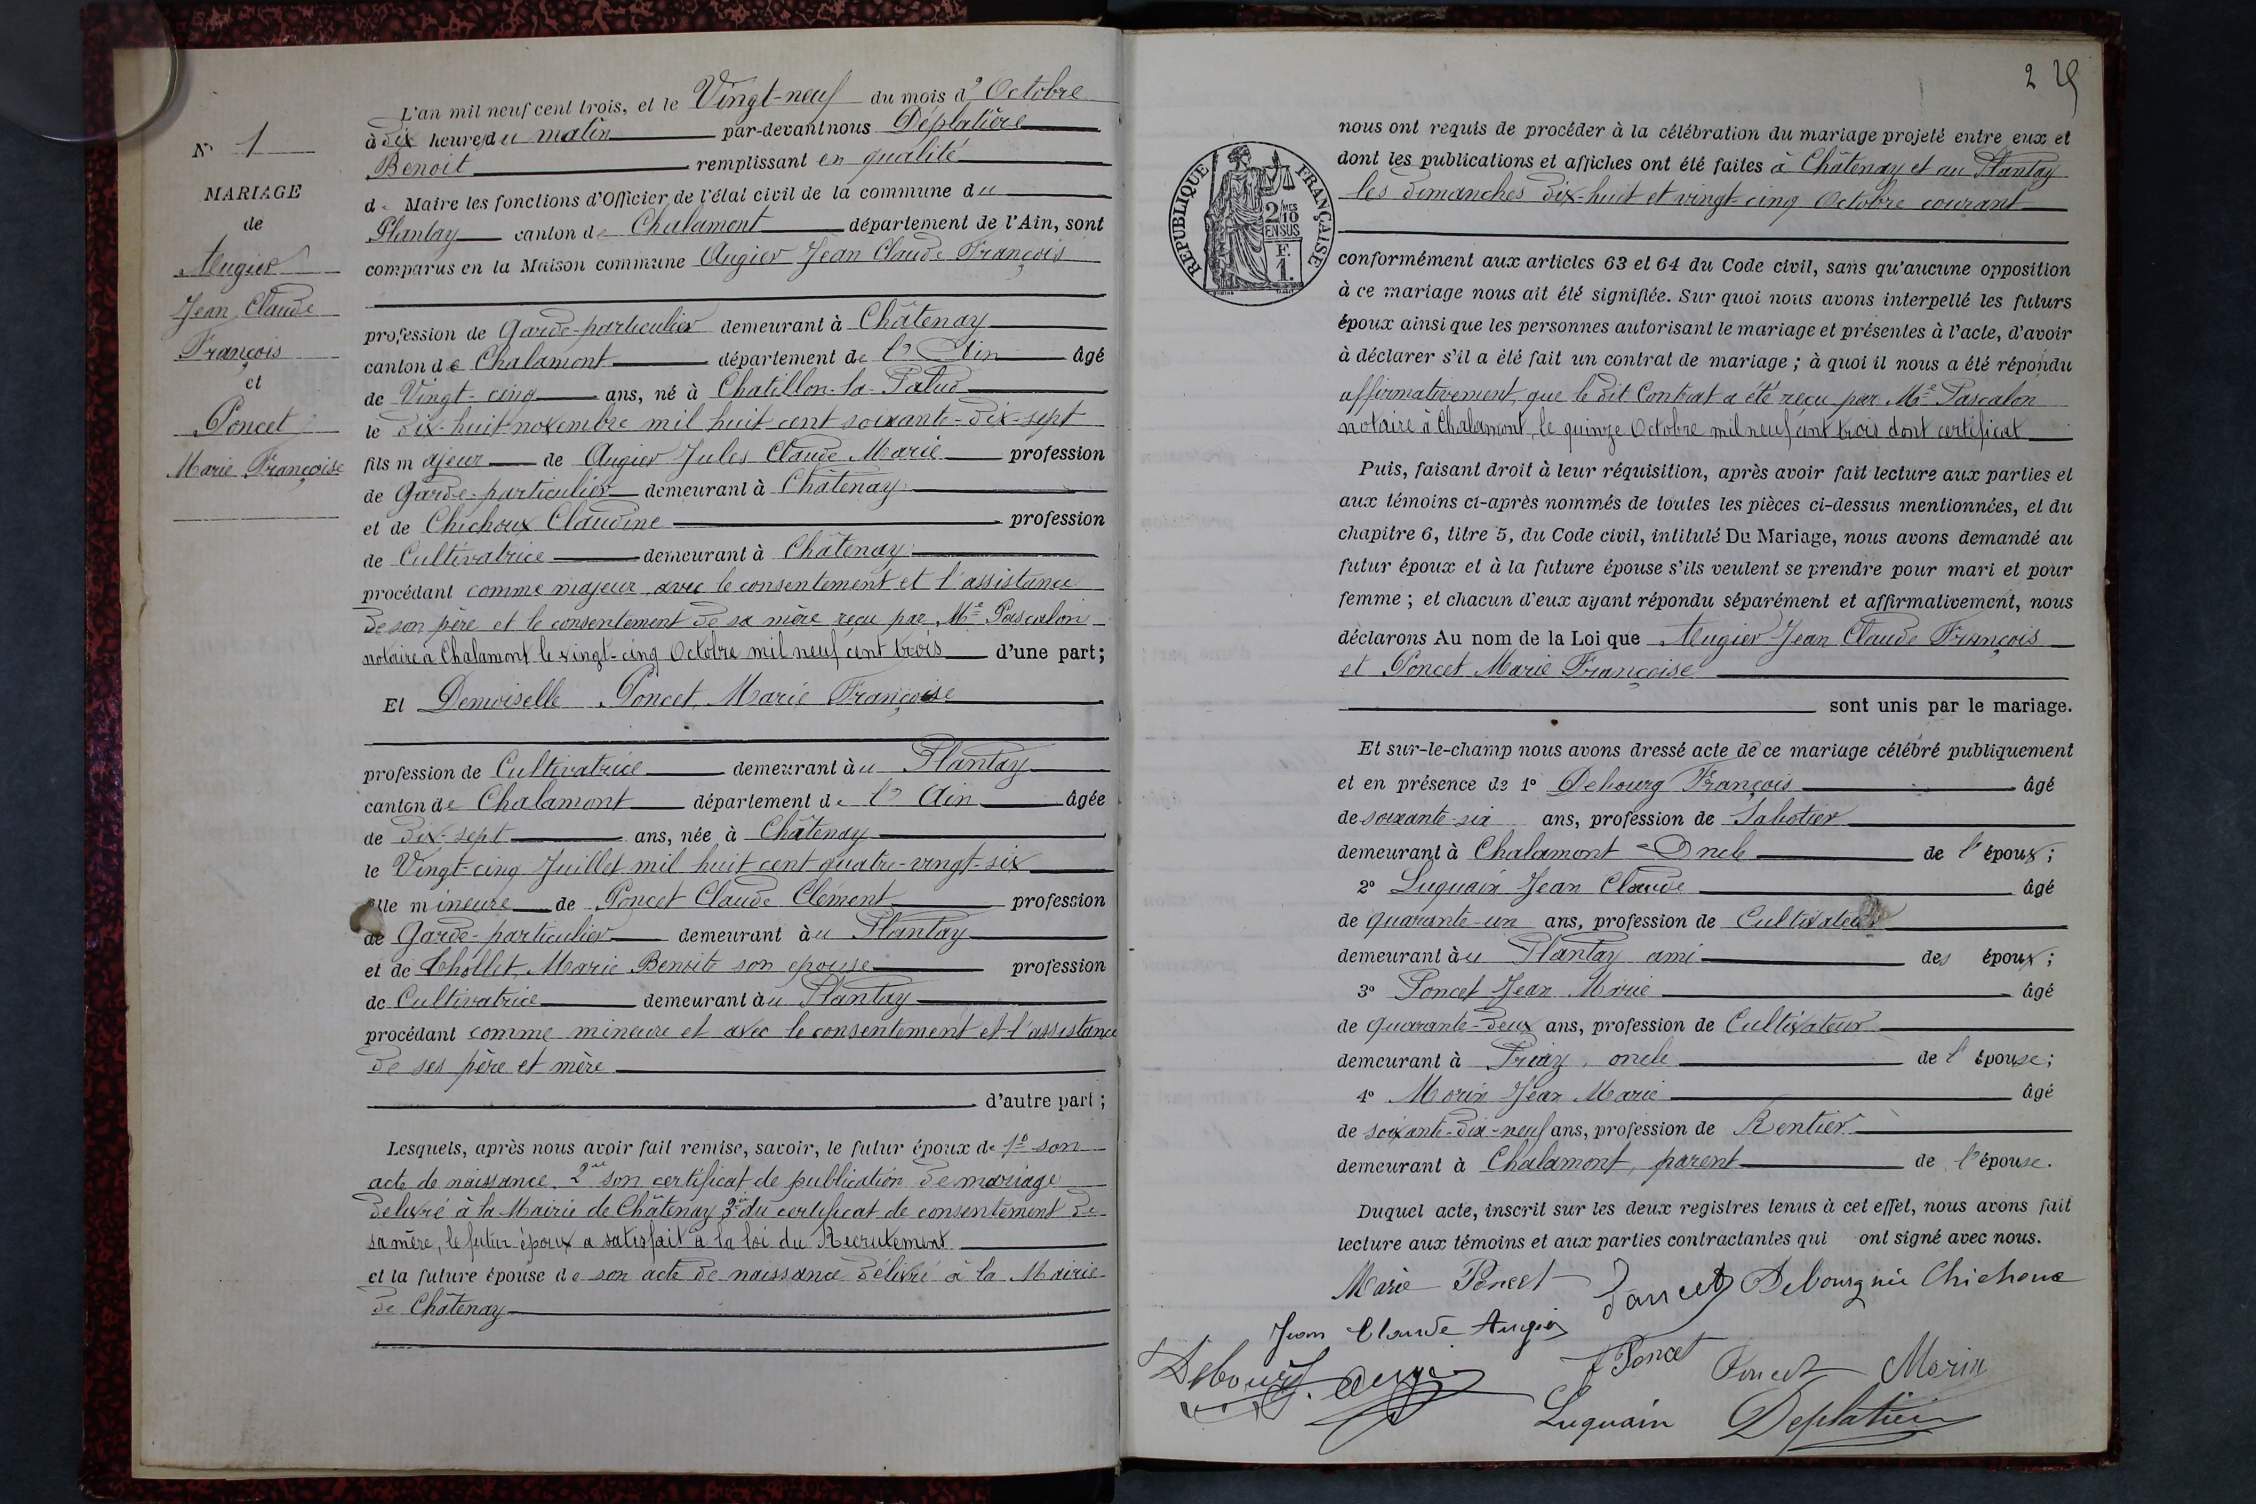 N° 1
MARIAGE
de
Augier
Jean Claude
François
et
Poncet
Marie Françoise
L'an mil neuf cent trois, et le Vingt-neuf du mois d'Octobre
à dix heures du matin par-devant nous Déplatière
Benoit remplissant en qualité
de Maire les fonctions d'Officier de l'état civil de la commune du
Plantay canton de Chalamont département de l'Ain, sont
comparus en la Maison commune Augier Jean Claude François
profession de Garde-particulier demeurant à Châtenay
canton de Chalamont département de l'Ain âgé
de Vingt-cinq ans, né à Chatillon-la-Palud
le dix-huit novembre mil huit cent soixante-dix-sept
fils majeur de Augier Jules Claude Marie profession
de Garde-particulier demeurant à Châtenay
et de Chichoux Claudine profession
de Cultivatrice demeurant à Châtenay
procédant comme majeur avec le consentement et l'assistance
de son père et le consentement de sa mère reçu par Me Pascalon
notaire à Chalamont le vingt-cinq Octobre mil neuf cent trois d'une part;
Et Demoiselle Poncet Marie Françoise
profession de Cultivatrice demeurant au Plantay
canton de Chalamont département de l'Ain âgée
de dix-sept ans, née à Châtenay
le Vingt-cinq Juillet mil huit cent quatre-vingt-six
fille mineure de Poncet Claude Clément profession
de Garde-particulier demeurant au Plantay
et de Chollet Marie Benoite son épouse profession
de Cultivatrice demeurant au Plantay
procédant comme mineure et avec le consentement et l'assistance
de ses père et mère
d'autre part;
Lesquels, après nous avoir fait remise, savoir, le futur époux de 1° son
acte de naissance 2me son certificat de publication de mariage
délivré à la Mairie de Châtenay 3me du certificat de consentement de
sa mère, le futur époux a satisfait à la loi du Recrutement
et la future épouse de son acte de naissance délivré à la Mairie
de Châtenay
2
RÉPUBLIQUE FRANÇAISE
2/10 MES
EN SUS
F.
1.
nous ont requis de procéder à la célébration du mariage projeté entre eux et
dont les publications et affiches ont été faites à Châtenay et au Plantay
les dimanches dix-huit et vingt-cinq Octobre courant
conformément aux articles 63 et 64 du Code civil, sans qu'aucune opposition
à ce mariage nous ait été signifiée. Sur quoi nous avons interpellé les futurs
époux ainsi que les personnes autorisant le mariage et présentes à l'acte, d'avoir
à déclarer s'il a été fait un contrat de mariage; à quoi il nous a été répondu
affirmativement, que le dit Contrat a été reçu par Me Pascalon
notaire à Chalamont, le quinze Octobre mil neuf cent trois dont certificat
Puis, faisant droit à leur réquisition, après avoir fait lecture aux parties et
aux témoins ci-après nommés de toutes les pièces ci-dessus mentionnées, et du
chapitre 6, titre 5, du Code civil, intitulé Du Mariage, nous avons demandé au
futur époux et à la future épouse s'ils veulent se prendre pour mari et pour
femme; et chacun d'eux ayant répondu séparément et affirmativement, nous
déclarons Au nom de la Loi que Augier Jean Claude François
et Poncet Marie Françoise
sont unis par le mariage.
Et sur-le-champ nous avons dressé acte de ce mariage célébré publiquement
et en présence de 1° Debourg François âgé
de soixante-six ans, profession de Sabotier
demeurant à Chalamont Oncle de l'époux;
2° Luquain Jean Claude âgé
de quarante-un ans, profession de Cultivateur
demeurant au Plantay ami des époux;
3° Poncet Jean Marie âgé
de quarante-deux ans, profession de Cultivateur
demeurant à Priay, oncle de l'épouse;
4° Morin Jean Marie âgé
de soixante-dix-neuf ans, profession de Rentier
demeurant à Chalamont, parent de l'épouse.
Duquel acte, inscrit sur les deux registres tenus à cet effet, nous avons fait
lecture aux témoins et aux parties contractantes qui ont signé avec nous.
Marie Poncet Poncet Debourg née Chichoux
Jean Claude Augier
Debourg Augier F Poncet Poncet Morin
Luquain Deplatière